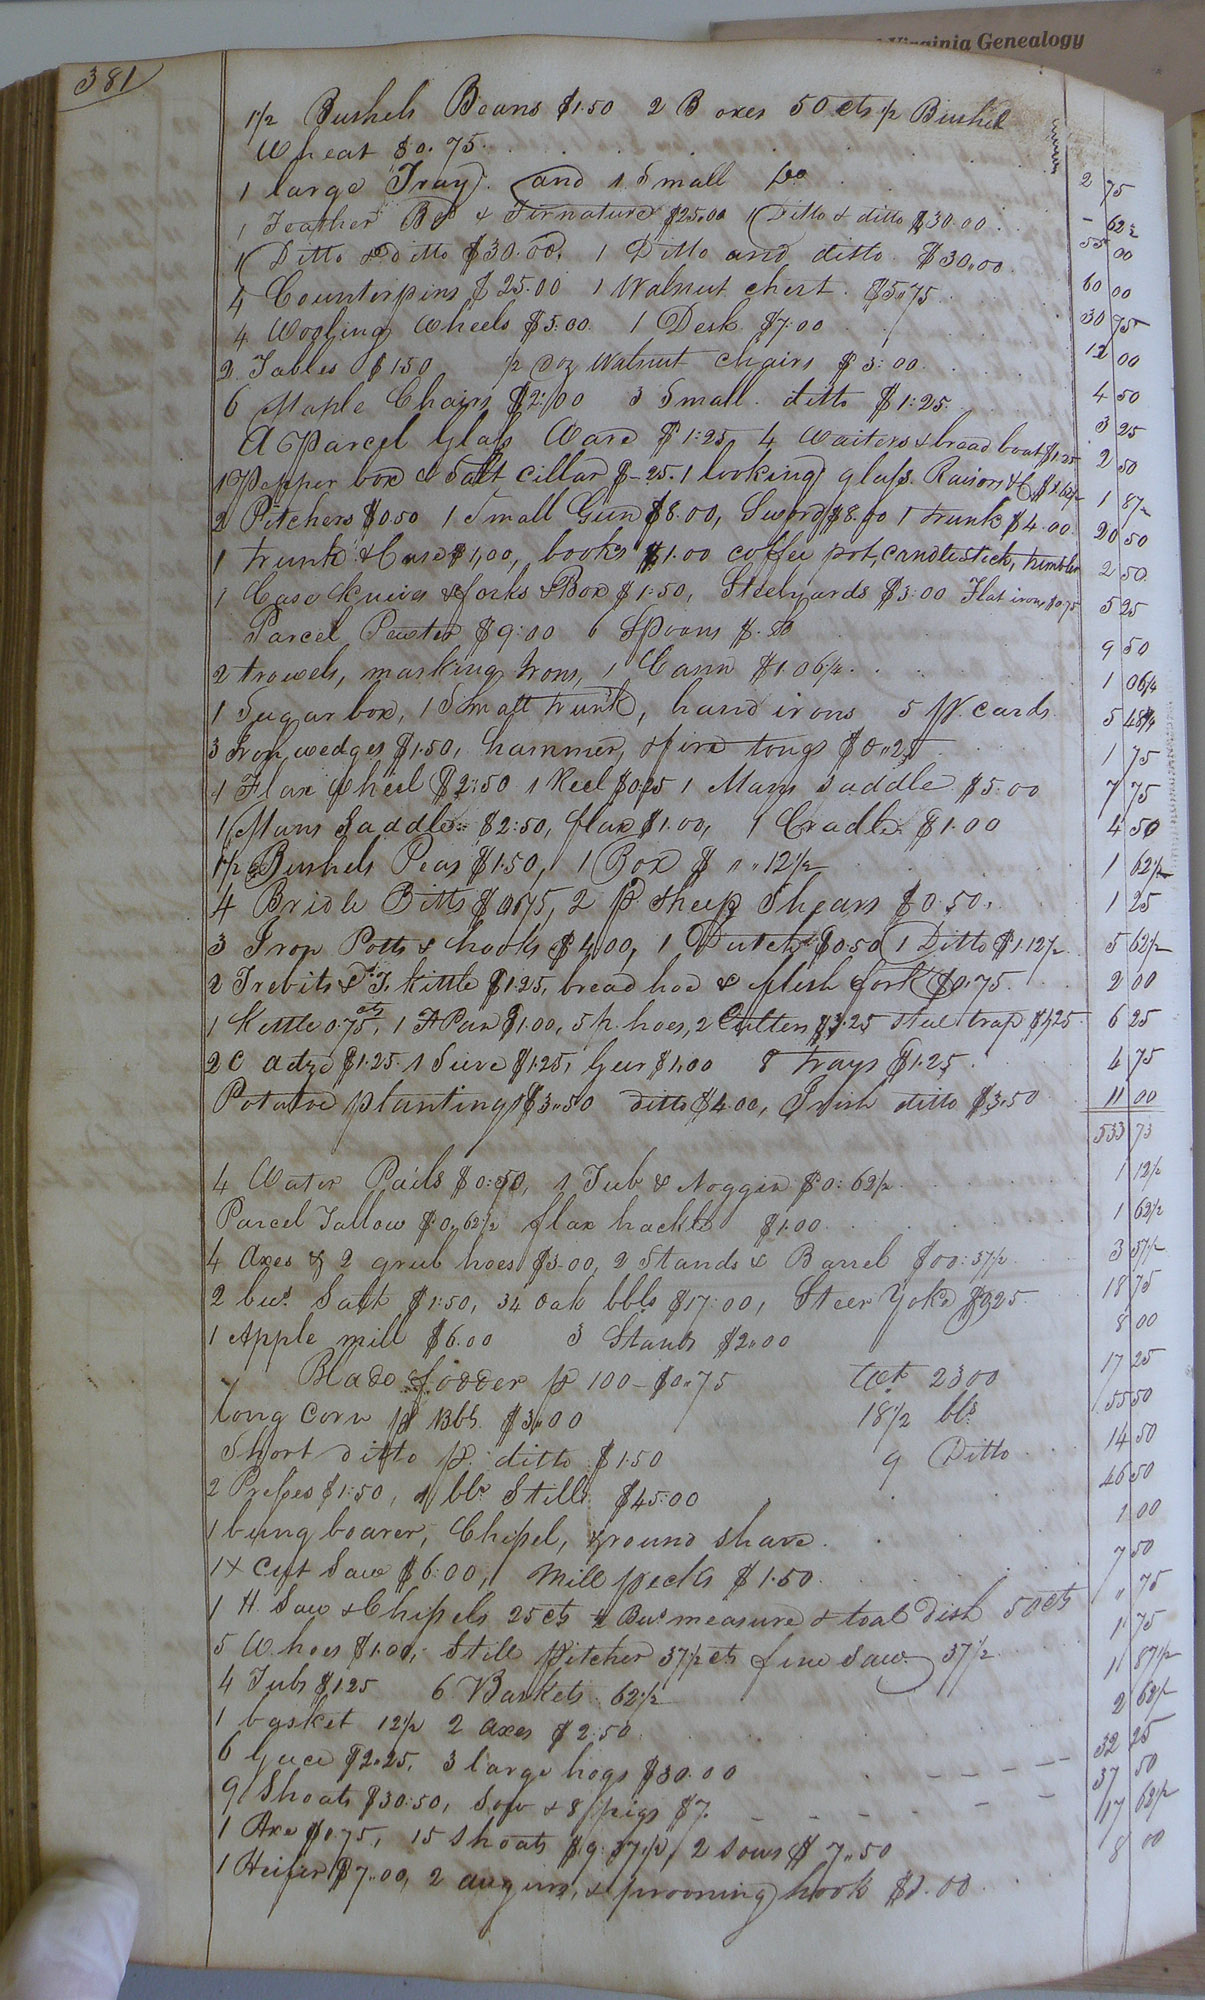 Virginia Genealogy
381
1 1/2 Bushels Beans $1.50 2 Boxes 50 cts 1/2 Bushel
Wheat $0.75 2 75
1 large Tray and 1 Small Do - 62 1/2
1 Feather Bed & Firnature $25.00 1 Ditto & ditto $30.00 55 00
1 Ditto & ditto $30.00, 1 Ditto and ditto $30.00 60 00
4 Counterpins $25.00 1 Walnut chest $5.75 30 75
4 Wooling Wheels $5.00 1 Desk $7.00 12 00
2 Tables $1.50 1/2 doz Walnut chairs $3.00 4 50
6 Maple Chairs $2.00 3 Small ditto $1.25 3 25
A Parcel Glass Ware $1.25 4 Waiters & bread boat $1.25 2 50
1 Pepper box & Salt cillar $-25. 1 looking glass. Rasiors &C $1.62 1/2 1 87 1/2
2 Pitchers $0.50 1 Small Gun $8.00, Sword $8.00 1 trunk $4.00 20 50
1 trunk & Case $1.00, books $1.00 coffee pot, candlestick, tumbler 2 50
1 Case knives & forks & Box $1.50, Steelyards $3.00 Flat irons $0.75 5 25
Parcel Pewter $9.00 6 Spoons $.50 9 50
2 trowels, marking Irons, 1 Cann $1.06 1/4 1 06 1/4
1 Sugar box, 1 Small trunk, hand irons 5 W. cards 5 48 3/4
3 Iron wedges $1.50, hammer, & fire tongs $0.25 1 75
1 Flax Wheel $2.50 1 Reel $0.25 1 Mans Saddle $5.00 7 75
1 Mans Saddle $2.50, flax $1.00, 1 Cradle $1.00 4 50
1 1/2 Bushels Peas $1.50, 1 Box $ " " 12 1/2 1 62 1/2
4 Bridle Bitts $0.75, 2 pr Sheep Shears $0.50, 1 25
3 Iron Potts & hooks $4.00, 1 Dutch $0.50 1 Ditto $1.12 1/2 5 62 1/2
2 Trebits & T. kittle $1.25, bread hoe & flesh fork $0.75 2 00
1 Kettle 0.75 cts, 1 F Pan $1.00, 5 p. hoes, 2 Cutters $3.25 steel trap $1.25 6 25
2 C adze $1.25 1 Sieve $1.25, Gear $1.00 8 trays $1.25 4 75
Potatoe planting $3.50 ditto $4.00, Irish ditto $3.50 11 00
533 73
4 Water Pails $0.50, 1 Tub & Noggin $0.62 1/2 1 12 1/2
Parcel Tallow $0.62 1/2 flax hackle $1.00 1 62 1/2
4 Axes & 2 grub hoes $3.00, 2 Stands & Barrel $00.37 1/2 3 37 1/2
2 bus. Salt $1.50, 34 Oak bbls $17.00, Steer Yoke $.25 18 75
1 Apple mill $6.00 3 Stands $2.00 8 00
Blade fodder pr 100 - $0.75 Wt. 2300 17 25
Long Corn pr Bbl. $3.00 18 1/2 bls 55 50
Short ditto pr ditto $1.50 9 Ditto 14 50
2 Presses $1.50, 1 bbr Still $45.00 46 50
1 bung boarer, Chisel, & round shave 1 00
1 X Cut Saw $6.00, Mill pecks $1.50 7 50
1 H. Saw & Chisels 25 cts 1/2 Bus measure & toal dish 50 cts " 75
5 W. hoes $1.00, Still pitcher 37 1/2 cts fine Saw 37 1/2 1 75
4 Tubs $1.25 6 Baskets 62 1/2 1 87 1/2
1 basket 12 1/2 2 axes $2.50 2 62 1/2
6 Geece $2.25, 3 large hogs $30.00 32 25
9 Shoats $30.50, Sow & 8 pigs $7. 37 50
1 Axe $0.75, 15 Shoats $9.37 1/2, 2 Sows $7.50 17 62 1/2
1 Heifer $7.00, 2 augurs, & prooning hook $1.00 8 00